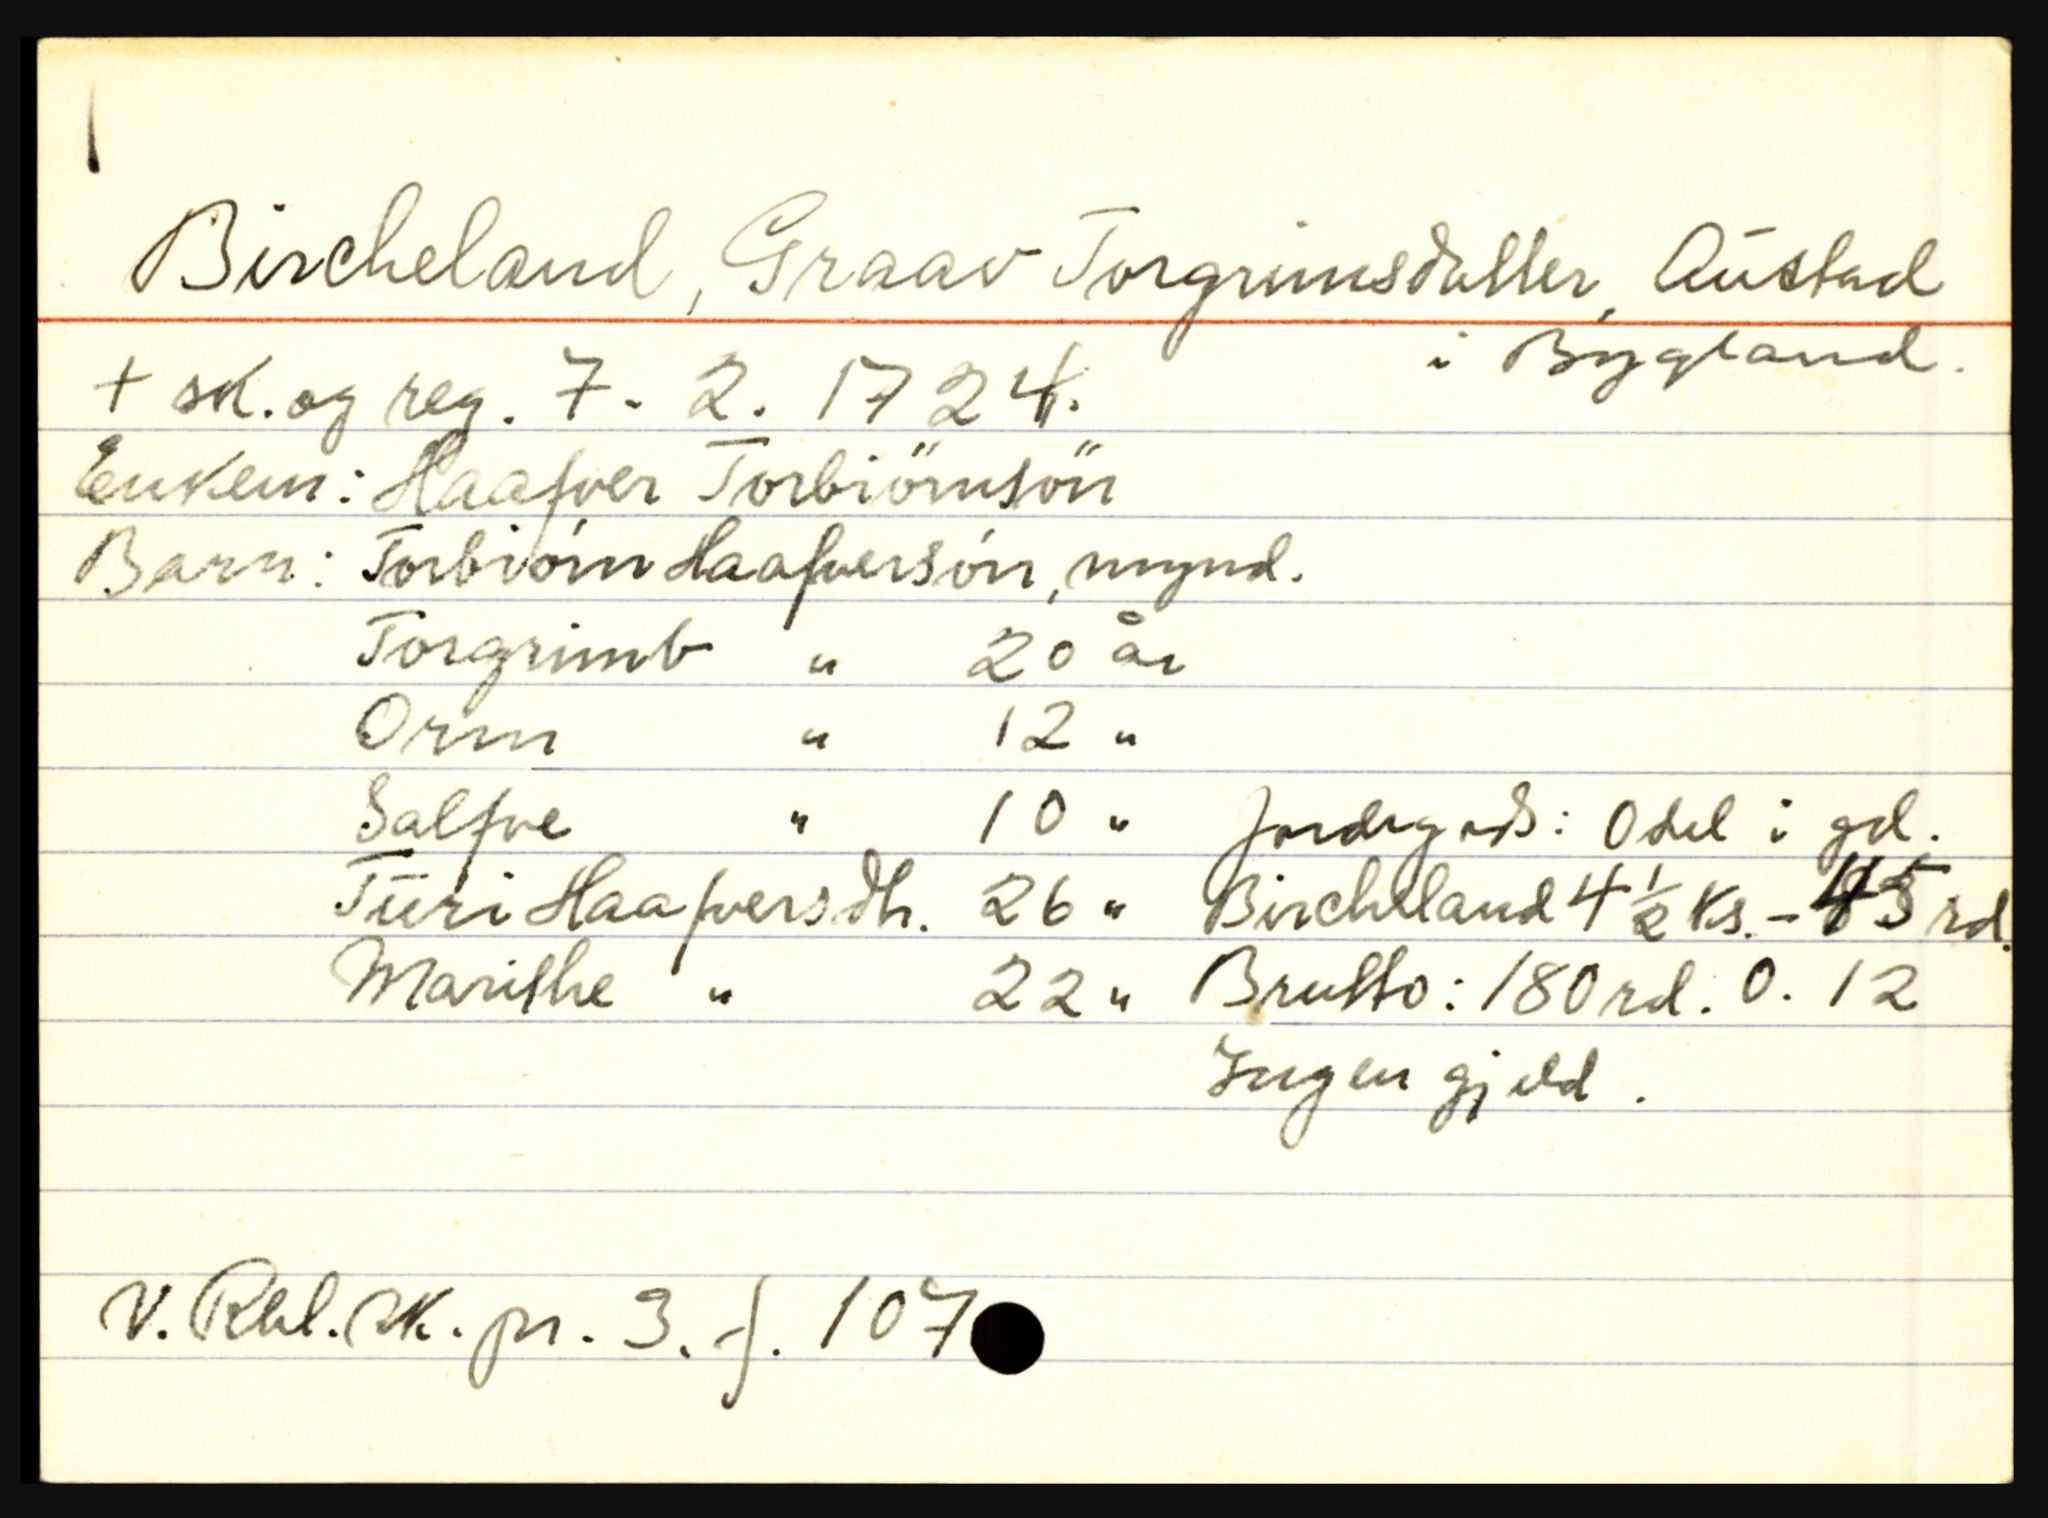 Bircheland, Graav Torgrimsdatter, Austad
i Bygland.
+ sk. og reg. 7. 2. 1724.
Enkem: Haafver Torbiörnsön
Barn: Torbiörn Haafversön, mynd.
Torgrimb " 20 år
Orm " 12 "
Salfve " 10 " Jordegods: Odel i gd.
Turi Haafversdtr. 26 " Bircheland 4 1/2 ks. - 45 rd.
Marithe " 22 " Brutto: 180 rd. 0. 12
Ingen gjeld.
V. Rbl. sk. pr. 3. f. 107